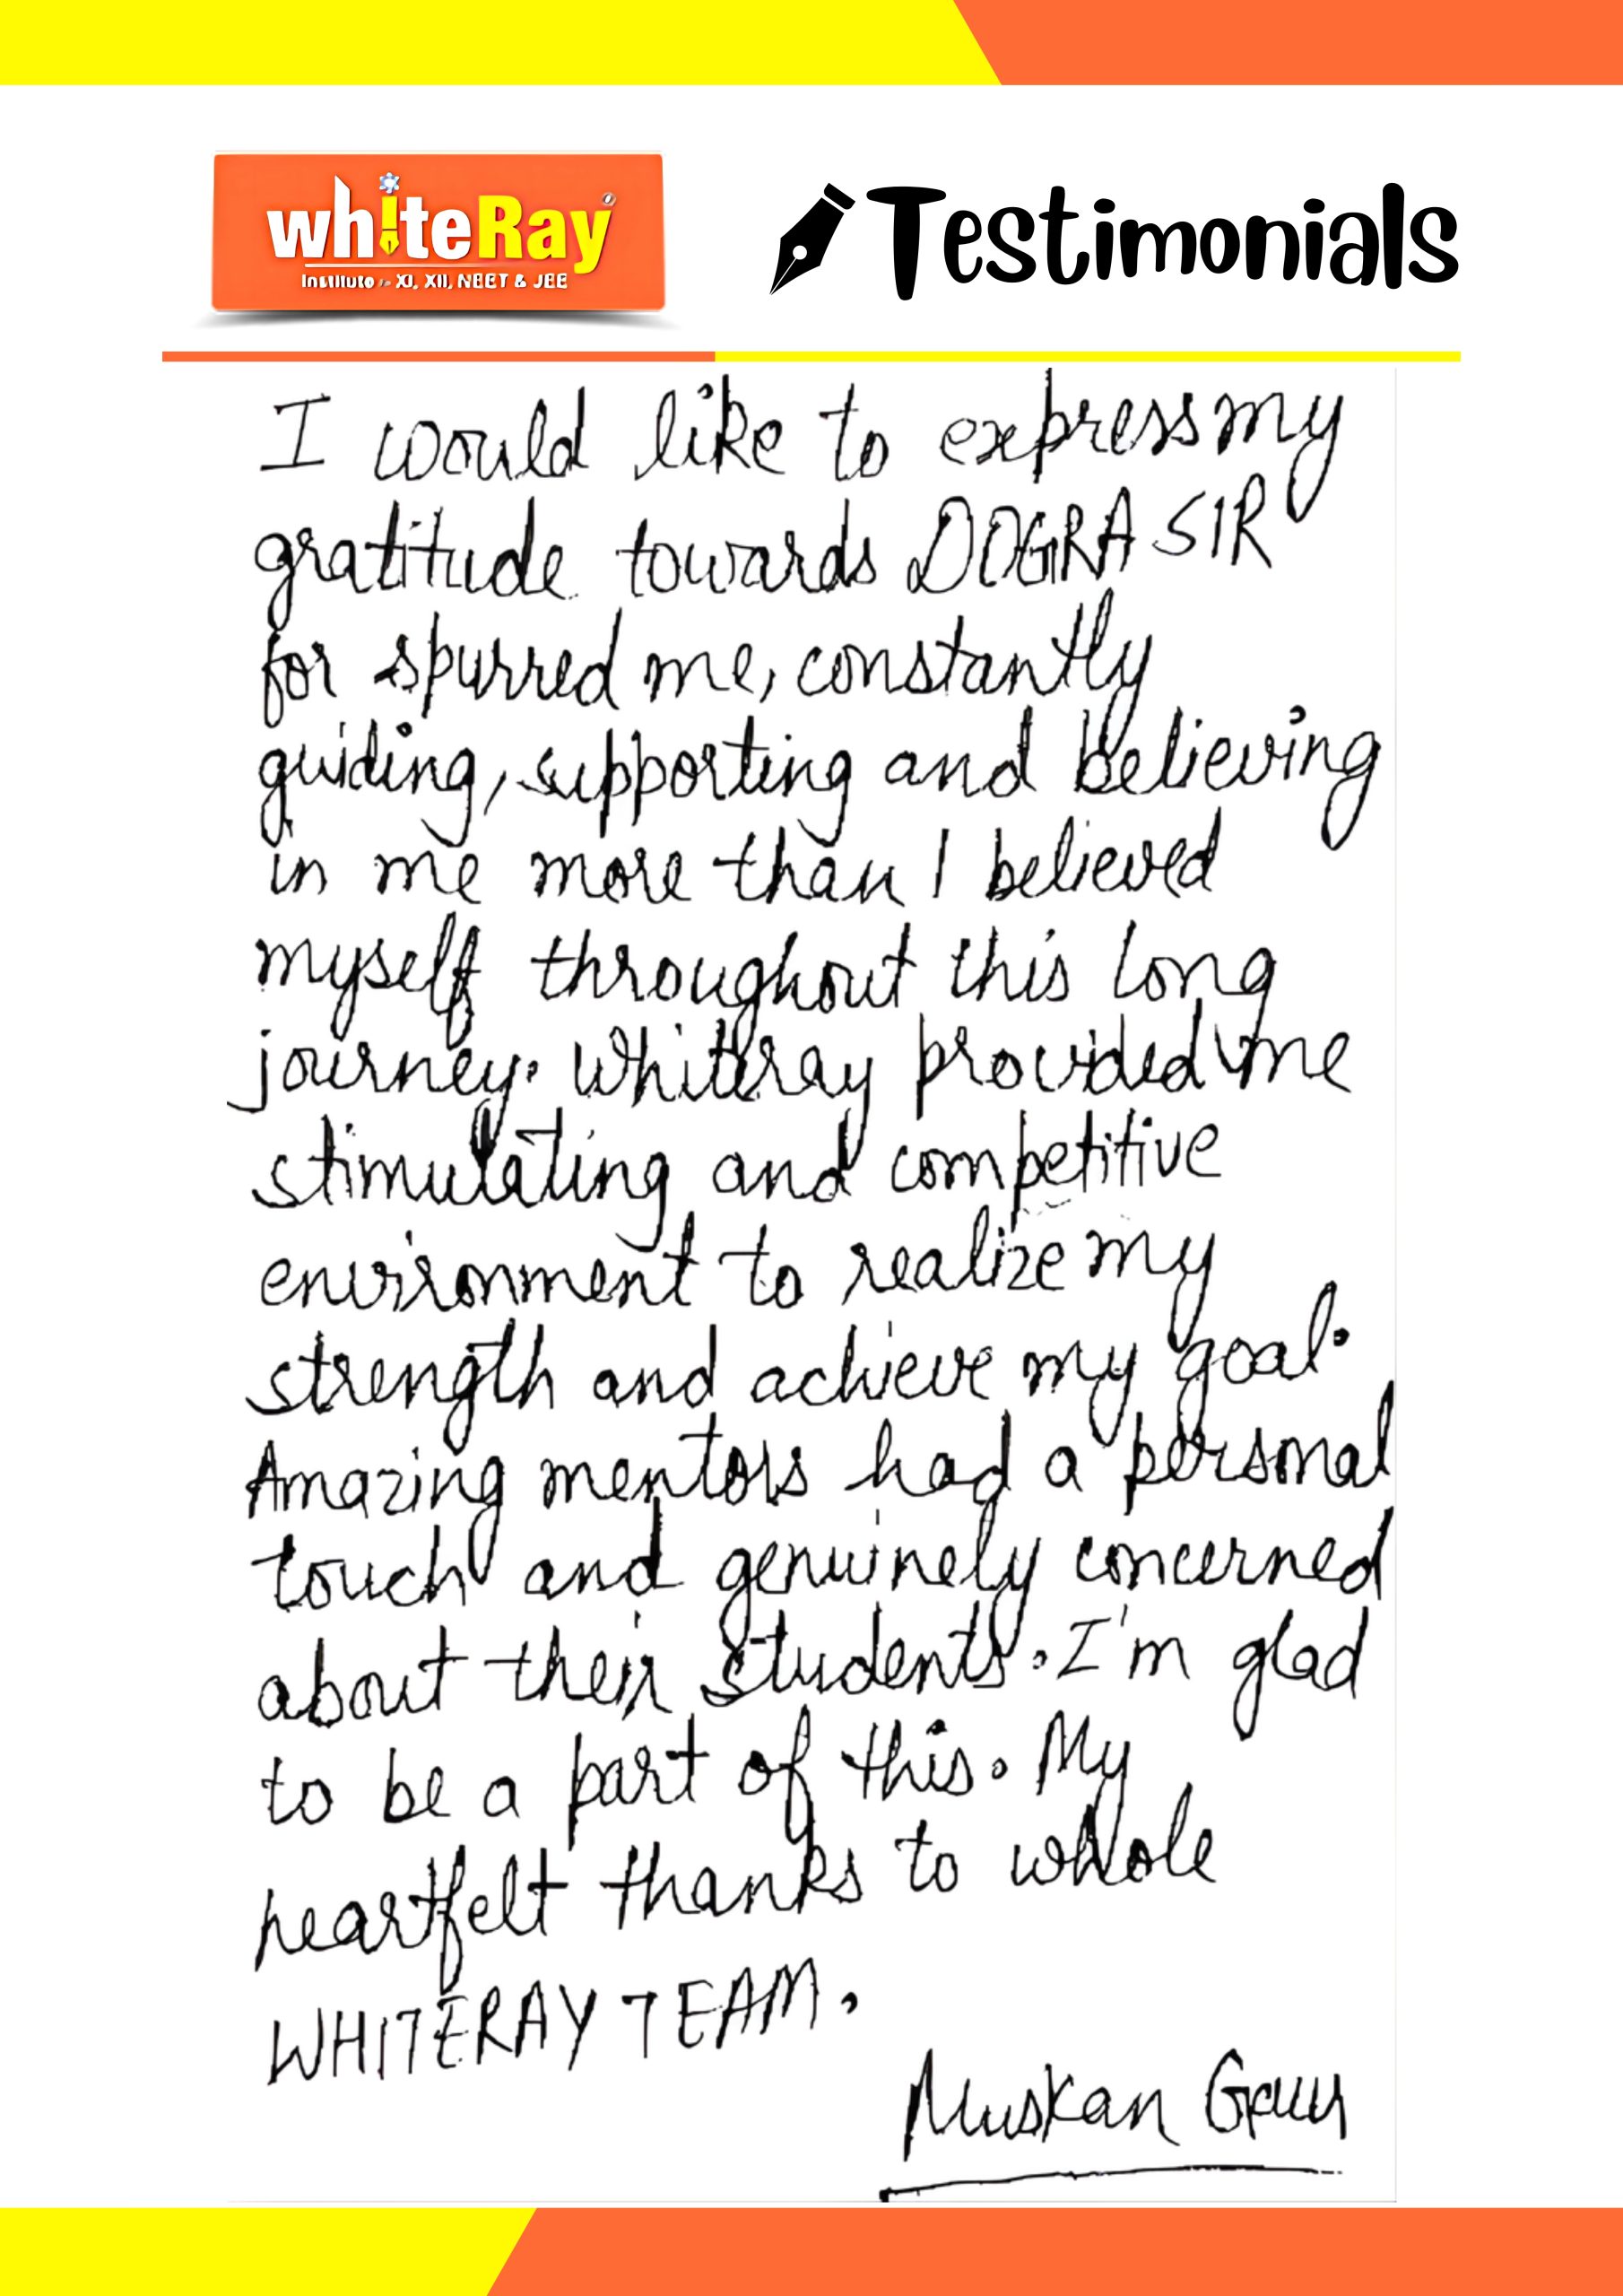 whiteRay
Institute - XI, XII, NEET & JEE
Testimonials
I would like to express my
gratitude towards DOGRA SIR
for spurred me, constantly
guiding, supporting and believing
in me more than I believed
myself throughout this long
journey. Whiteray provided me
stimulating and competitive
environment to realize my
strength and achieve my goal.
Amazing mentors had a personal
touch and genuinely concerned
about their students. I'm glad
to be a part of this. My
heartfelt thanks to whole
WHITERAY TEAM.
Muskan Gaur